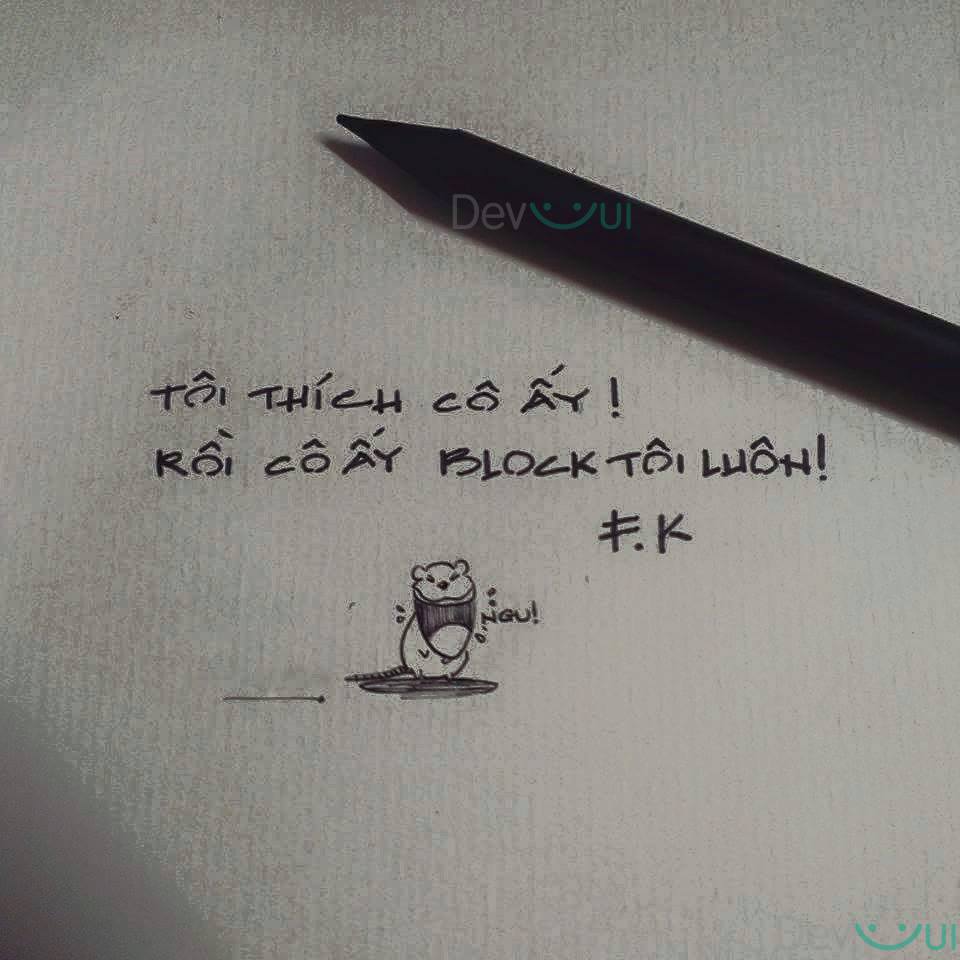 Devui
TÔI THÍCH CÔ ẤY!
RỒI CÔ ẤY BLOCK TÔI LUÔN!
F.K
NGU!
Devui